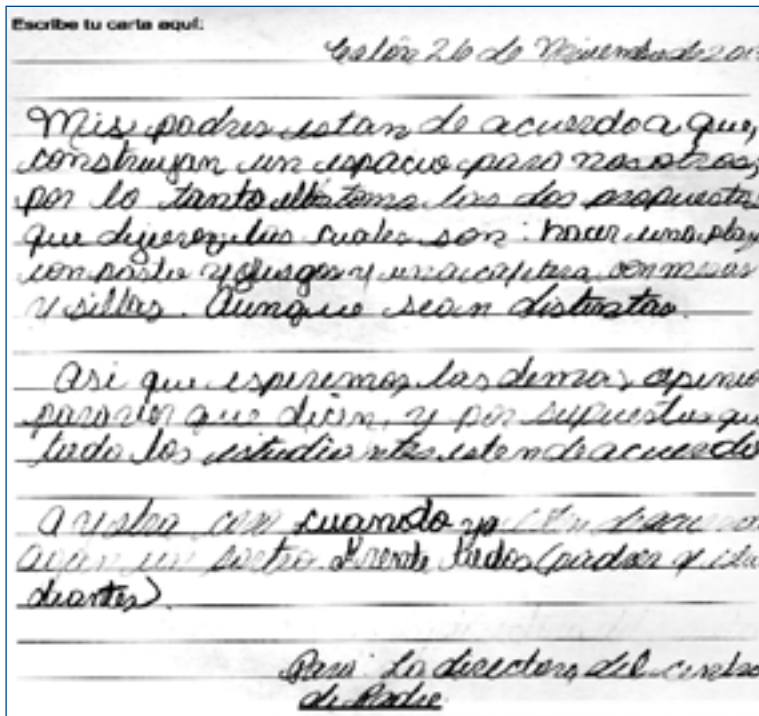 Escribe tu carta aquí:
Colón 26 de Noviembre de 201
Mis padres estan de acuerdo a que,
construyan un espacio para nosotros,
por lo tanto ellos toma los dos propuesta
que dijeron, las cuales son: hacer una play
con pasto y juegos y una con mesas
y sillas. Aunque sean distintas.
Asi que esperemos las demas, opinio
para ver que dicen, y por supuesto que
todo los estudiantes esten de acuerdo
cuando ya
agan un sorteo frente todos (padres y estu
diantes).
Para: La directora, del centro
de Padre